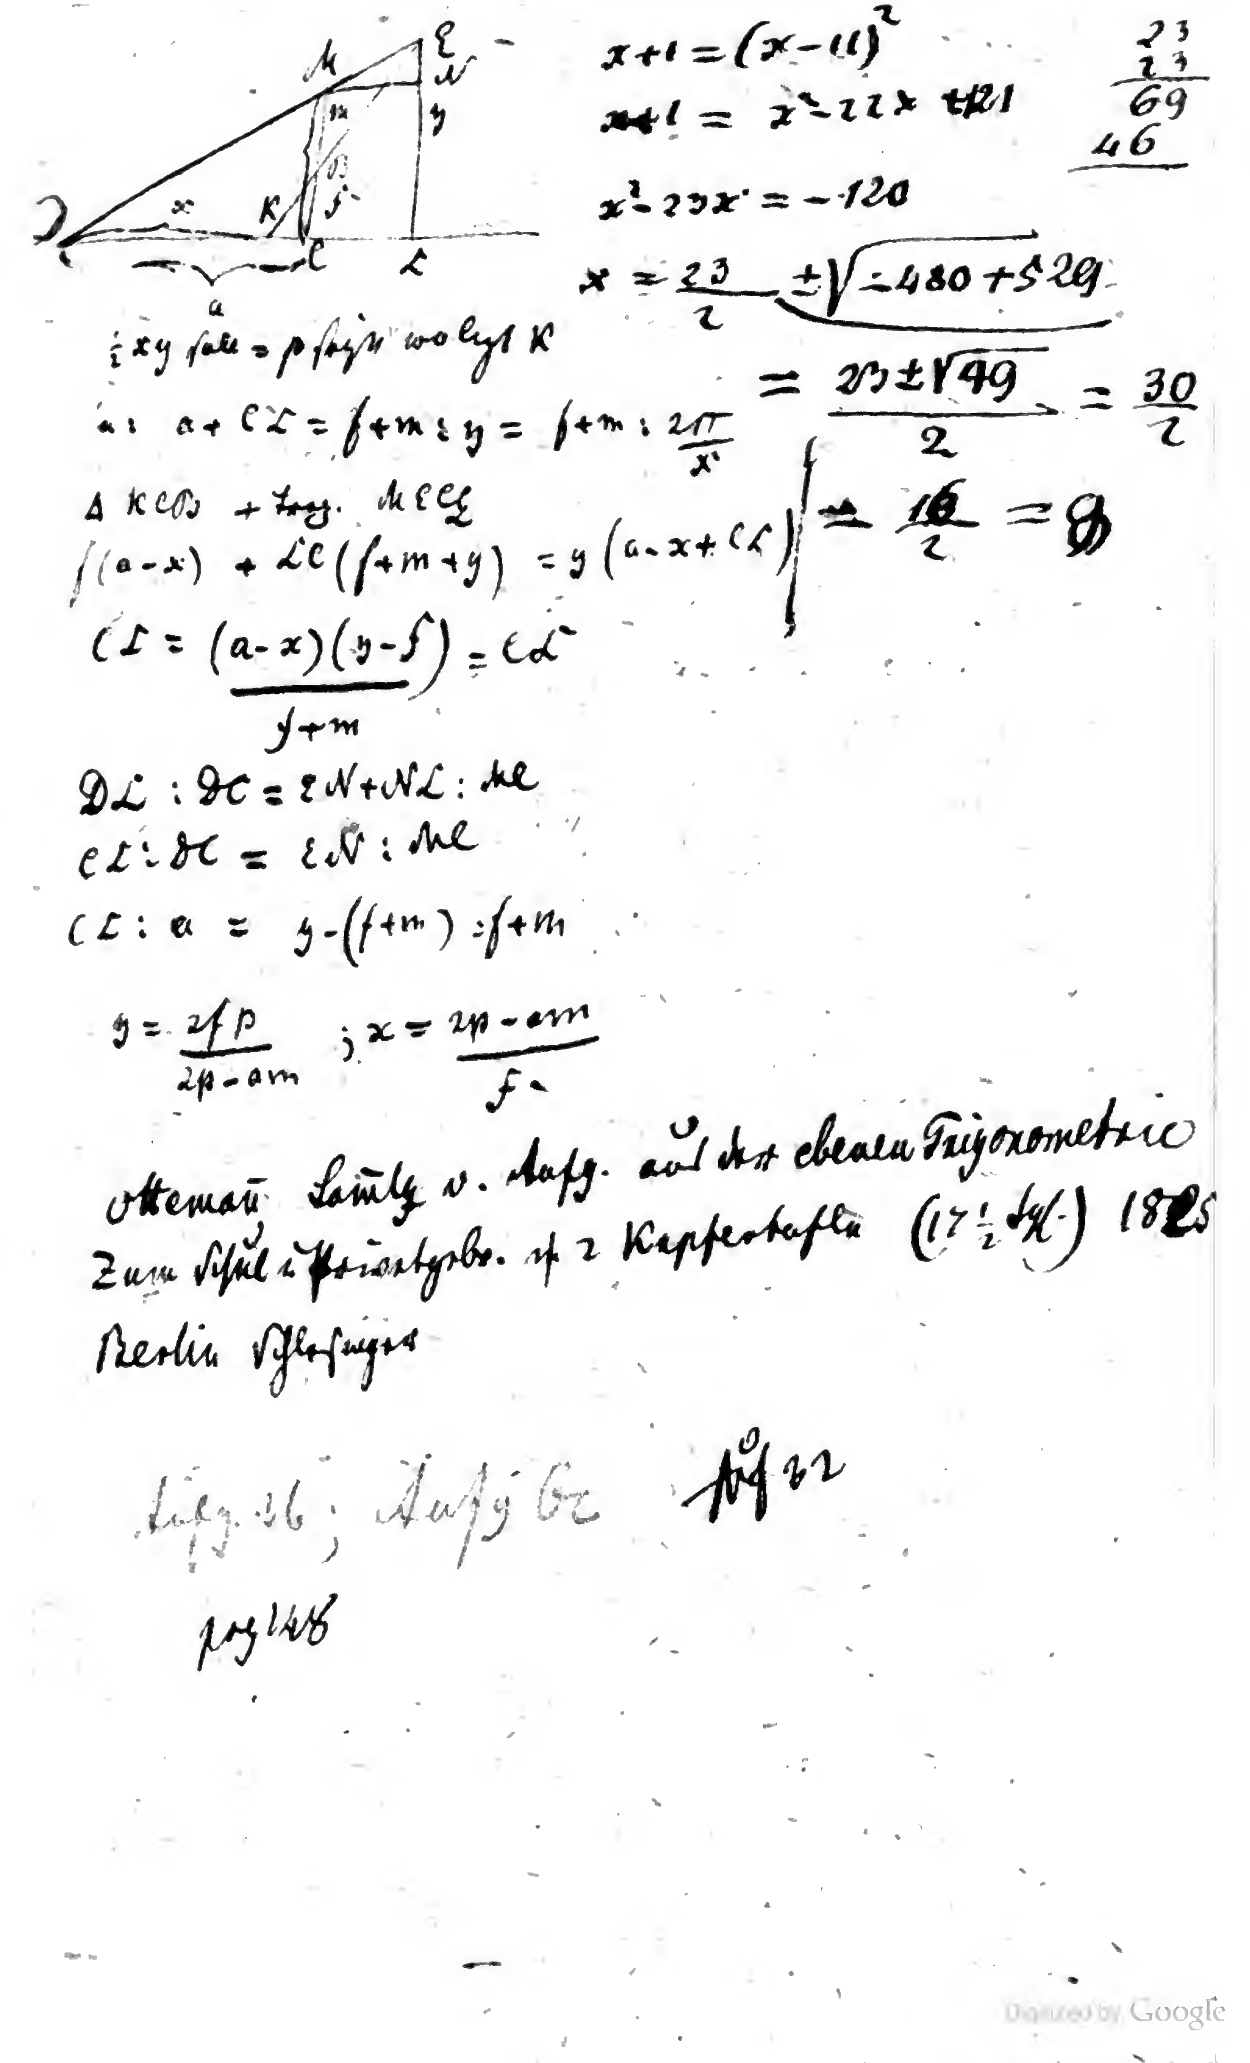 E
M
N
m
y
B
x
K
f
D
C
L
a
x+1 = (x-11)²
x+1 = x²-22x+121
x²-23x = -120
x = 23/2 ± √-480+529
= 23±√49 / 2 = 30/2
= 16/2 = 8
23
23
69
46
½ xy soll = p K
a : a + CL = f+m : y = f+m : 2p/x
Δ KCB + Trap. MECL
f(a-x) + LC(f+m+y) = y(a-x+CL)
CL = (a-x)(y-f) / f+m = CL
DL : DC = EN+NL : MC
CL : DC = EN : MC
CL : a = y-(f+m) : f+m
y = 2fp / 2p-am ; x = 2p-am / f
v. Aufg. aus der ebenen Trigonometrie
Zum Schul u Privatgebr. 2 Kupfertafeln (17½ Sgl.) 18
Berlin Schlesinger
Aufg. 36 ; Aufg
Auf 32
pag 148
Digitized by Google